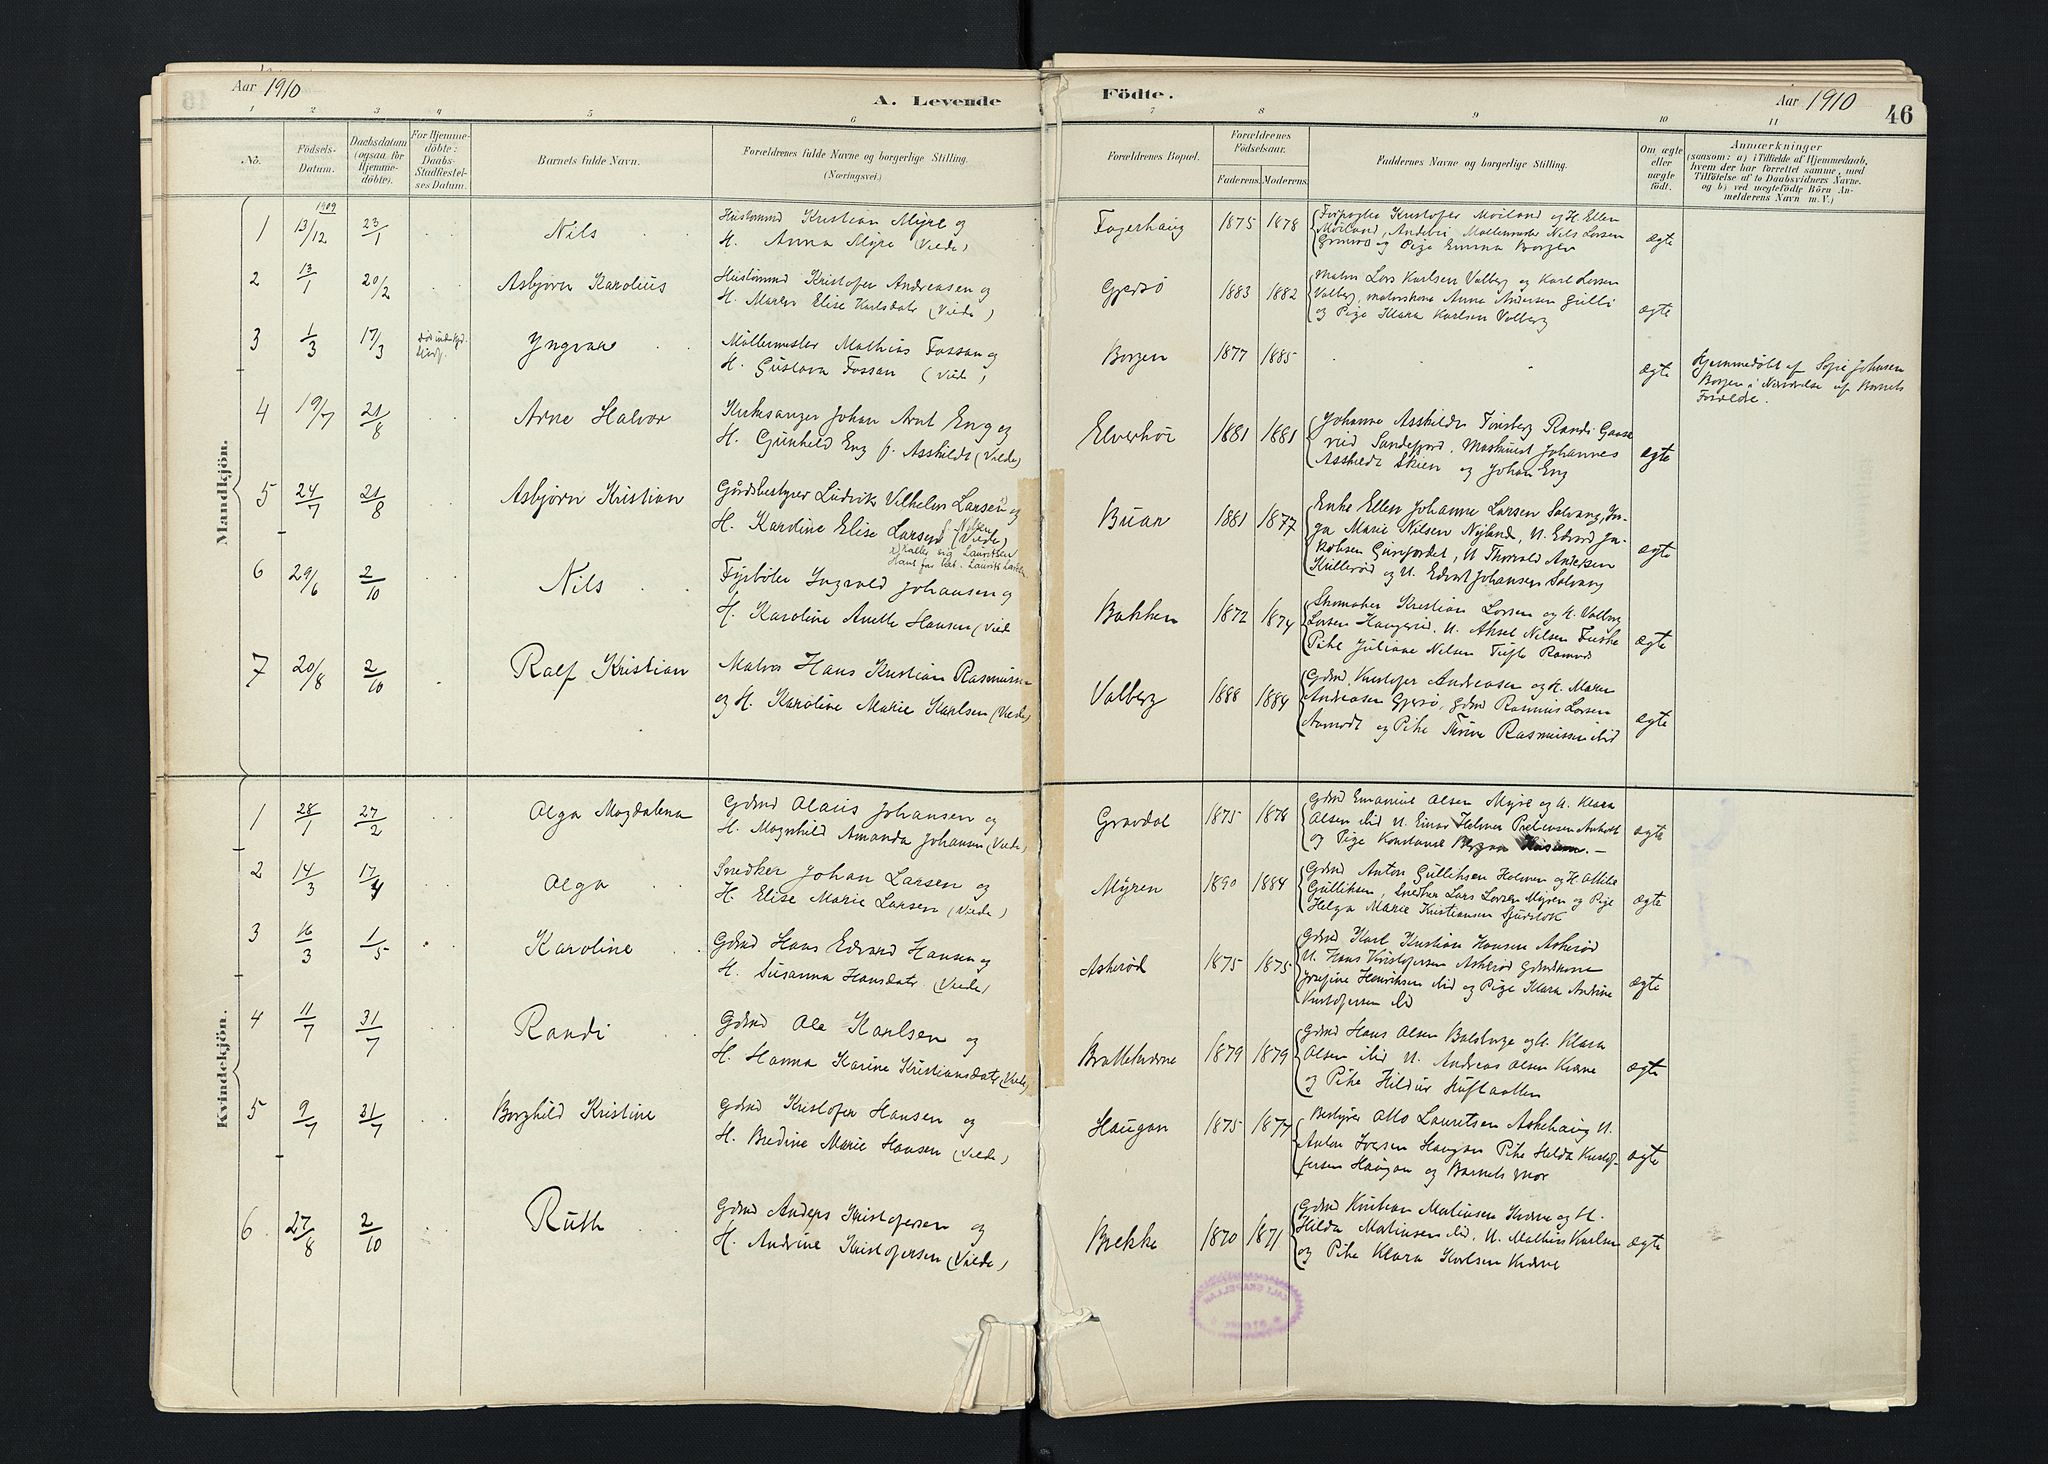 Aar 1910
A. Levende
1 2 3 4 5 6
No.
Födsels-
Datum.
Daabsdatum
(ogsaa for
Hjemme-
döbte).
For Hjemme-
döbte:
Daabs-
Stadfæstel-
ses Datum.
Barnets fulde Navn.
Forældrenes fulde Navne og borgerlige Stilling.
(Næringsvei.)
Mandkjön.
1 13/12 1909 23/1 Nils
Kristian Myre og
H. Anna Myre (Viede)
2 13/1 20/2 Asbjørn Karolius
Kristofer Andreasen og
H. Maren Elise Karlsdatr (Viede)
3 1/3 17/3 Yngvar
Møllermester Mathias Fossan og
H. Gustava Fossan (Viede)
4 19/7 21/8 Arne Halvor
Kirkesanger Johan Arnt Eng og
H. Gunhild Eng f. Asskildt (Viede)
5 24/7 21/8 Asbjørn Kristian
Gårdsbestyrer Ludvik Vilhelm Larsen og
H. Karoline Elise Larsen f. Nilsen (Viede)
kaller sig Lauritsen
Hans far het Laurits Larsen
6 29/6 2/10 Nils
Fyrbøter Ingvald Johansen og
H. Karoline Anette Hansen (Viede
7 20/8 2/10 Ralf Kristian
Matros Hans Kristian Rasmussen
og H. Karoline Marie Karlsen (Viede)
Kvindekjön.
1 28/1 27/2 Olga Magdalena
Gdmd Olaus Johansen og
H. Magnhild Amanda Johansen (Viede)
2 14/3 17/4 Olga
Snedker Johan Larsen og
H. Elise Marie Larsen (Viede)
3 16/3 1/5 Karoline
Gdmd Hans Edvard Hansen og
H. Susanna Hansdatr (Viede)
4 11/7 31/7 Randi
Gdmd Ole Karlsen og
H. Hanna Karine Kristiansdatr (Viede)
5 9/7 31/7 Borghild Kristine
Gdmd Kristofer Hansen og
H. Bredine Marie Hansen (Viede)
6 27/8 2/10 Ruth
Gdmd Anders Kristofersen og
H. Andrine Kristofersen (Viede)
Födte.
Aar 1910
46
7 8 9 10 11
Forældrenes Bopæl.
Forældrenes
Födselsaar.
Faderens. Moderens.
Faddernes Navne og borgerlige Stilling.
Om ægte
eller
uægte
födt.
Anmærkninger
(saasom: a) i Tilfælde af Hjemmedaab,
hvem der har forrettet samme, med
Tilföielse af to Daabsvidners Navne.
og b) ved uægtefödte Börn An-
melderens Navn m. V.)
Fagerhaug 1875 1878
Kristofer Moiland og H. Ellen
Moiland, Møllermester Nils Larsen
og Pige Emma Borgen
ægte
Gjersø 1883 1882
Matros Lars Karlsen Valberg og Karl Larsen
Valberg, Anna Andersen Gulli
og Pige Klara Karlsen Valberg
ægte
Borgen 1877 1885
ægte
Hjemmedøbt af Sofie Johnsen
Borgen i Nærværelse af Barnets
Forældre.
Elverhøi 1881 1881
Johanne Asskildt Tønsberg Randi
Sandefjord, Maskinist Johannes
Asskildt Skien og Johan Eng
ægte
Buar 1881 1877
Enke Ellen Johanne Larsen Solvang, In-
ga Marie Nilsen Nyland, U. Edvard Ja-
kobsen, U Thorvald Andersen
og U. Edvart Johansen Solvang
ægte
Bakken 1872 1874
Skomaker Kristian Larsen og H. Valborg
Larsen, U. Aksel Nilsen
Pike Juliane Nilsen Tufte Ramnes
ægte
Valberg 1888 1884
Gdmd. Kristofer Andreasen og H. Maren
Andreasen Gjersø, Gdmd Rasmus Larsen
og Pike Rasmussen ibid
ægte
Gravdal 1875 1878
Gdmd Emanuel Olsen Myre og H. Klara
Olsen ibid U. Einar Helmer
og Pige Konstanse
ægte
Myren 1890 1884
Gdmd Anton Gulliksen Holmen og H. Otilie
Gulliksen, Snedker Lars Larsen Myren og Pige
Helga Marie Kristiansen
ægte
Askerød 1875 1875
Gdmd Karl Kristian Hansen Askerød
U. Hans Kristofersen Askerød Gdmdkone
Josefine Henriksen ibid og Pige Klara Andrine
Kristofersen ibid
ægte
1879 1879
Gdmd Hans Olsen og H. Klara
Olsen ibid U. Andreas Olsen
og Pike Hildur
ægte
Haugan 1875 1877
Bestyrer Otto Lauritsen Askehaug U.
Anton Iversen Haugan Pike Hilda Kristof-
fersen Haugan og Barnets Mor
ægte
Brekke 1870 1871
Gdmd Kristian Matiasen og H.
Hilda Matiasen ibid, U. Mathias Karlsen
og Pike Klara Karlsen
ægte